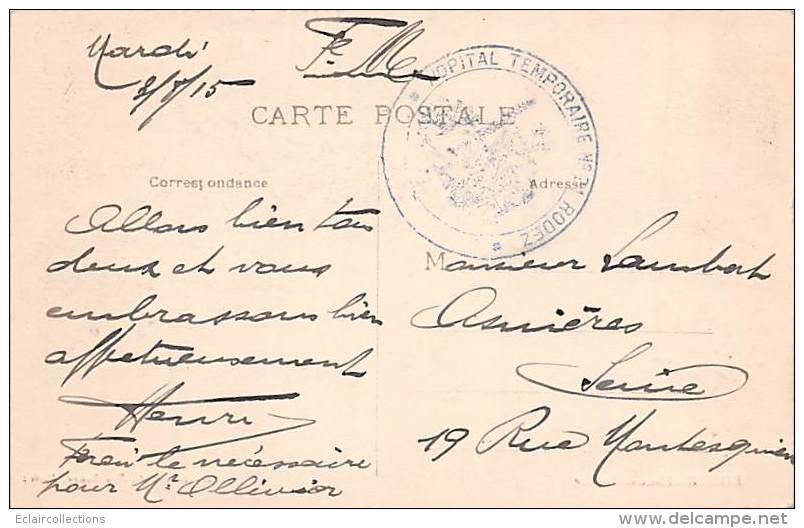 Mardi
F. M.
CARTE POSTALE
HOPITAL TEMPORAIRE Nº 21 RODEZ
Correspondance
Adresse
Allons bien tous
deux et vous
embrassons bien
affectueusement
Henri
le nécessaire
pour Mr Ollivier
Monsieur Lambert
Asnières
Seine
19 Rue Montesquieu
Eclaircollections